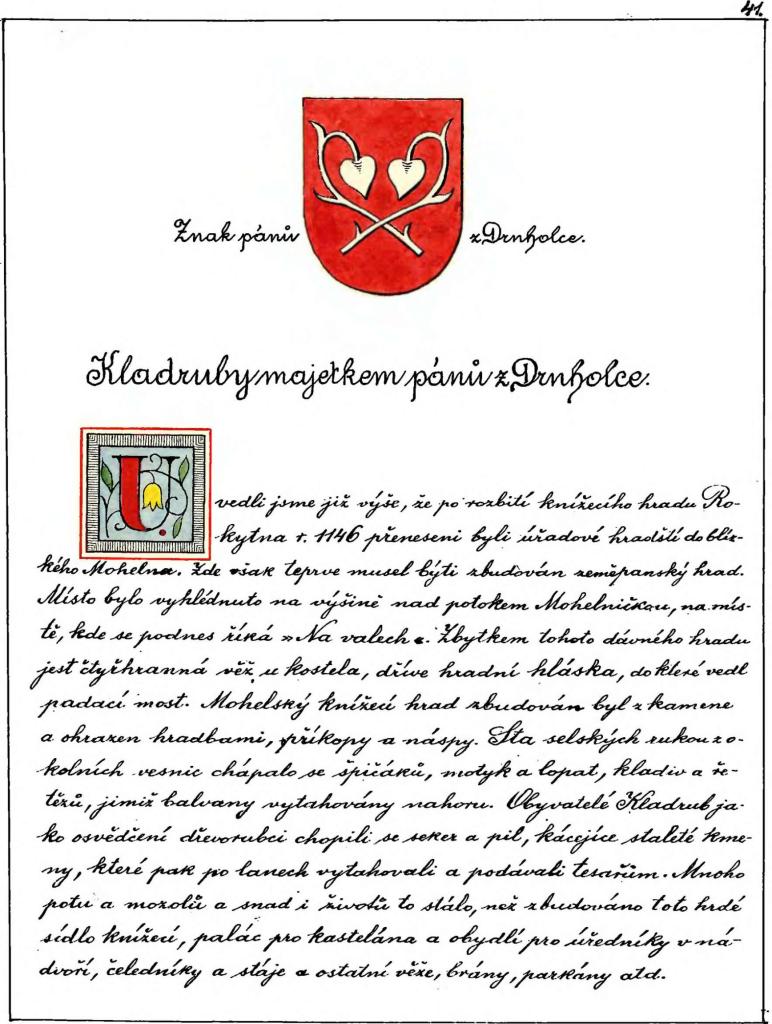 41.
Znak pánův z Drnholce.
Kladruby majetkem pánův z Drnholce.
Uvedli jsme již výše, že po rozbití knížecího hradu Ro-
kytna r. 1146 přeneseni byli úřadové hradští do blíz-
kého Mohelna. Zde však teprve musel býti zbudován zeměpanský hrad.
Místo bylo vyhlédnuto na výšině nad potokem Mohelničkou, na mís-
tě, kde se podnes říká »Na valech«. Zbytkem tohoto dávného hradu
jest čtyřhranná věž u kostela, dříve hradní hláska, do které vedl
padací most. Mohelský knížecí hrad zbudován byl z kamene
a ohrazen hradbami, příkopy a náspy. Sta selských rukou z o-
kolních vesnic chápalo se špičáků, motyk a lopat, kladiv a ře-
tězů, jimiž balvany vytahovány nahoru. Obyvatelé Kladrub ja-
ko osvědčení dřevorubci chopili se seker a pil, kácejíce staleté kme-
ny, které pak po lanech vytahovali a podávali tesařům. Mnoho
potu a mozolů a snad i životů to stálo, než zbudováno toto hrdé
sídlo knížecí, palác pro kastelána a obydlí pro úředníky v ná-
dvoří, čeledníky a stáje a ostatní věže, brány, parkány atd.